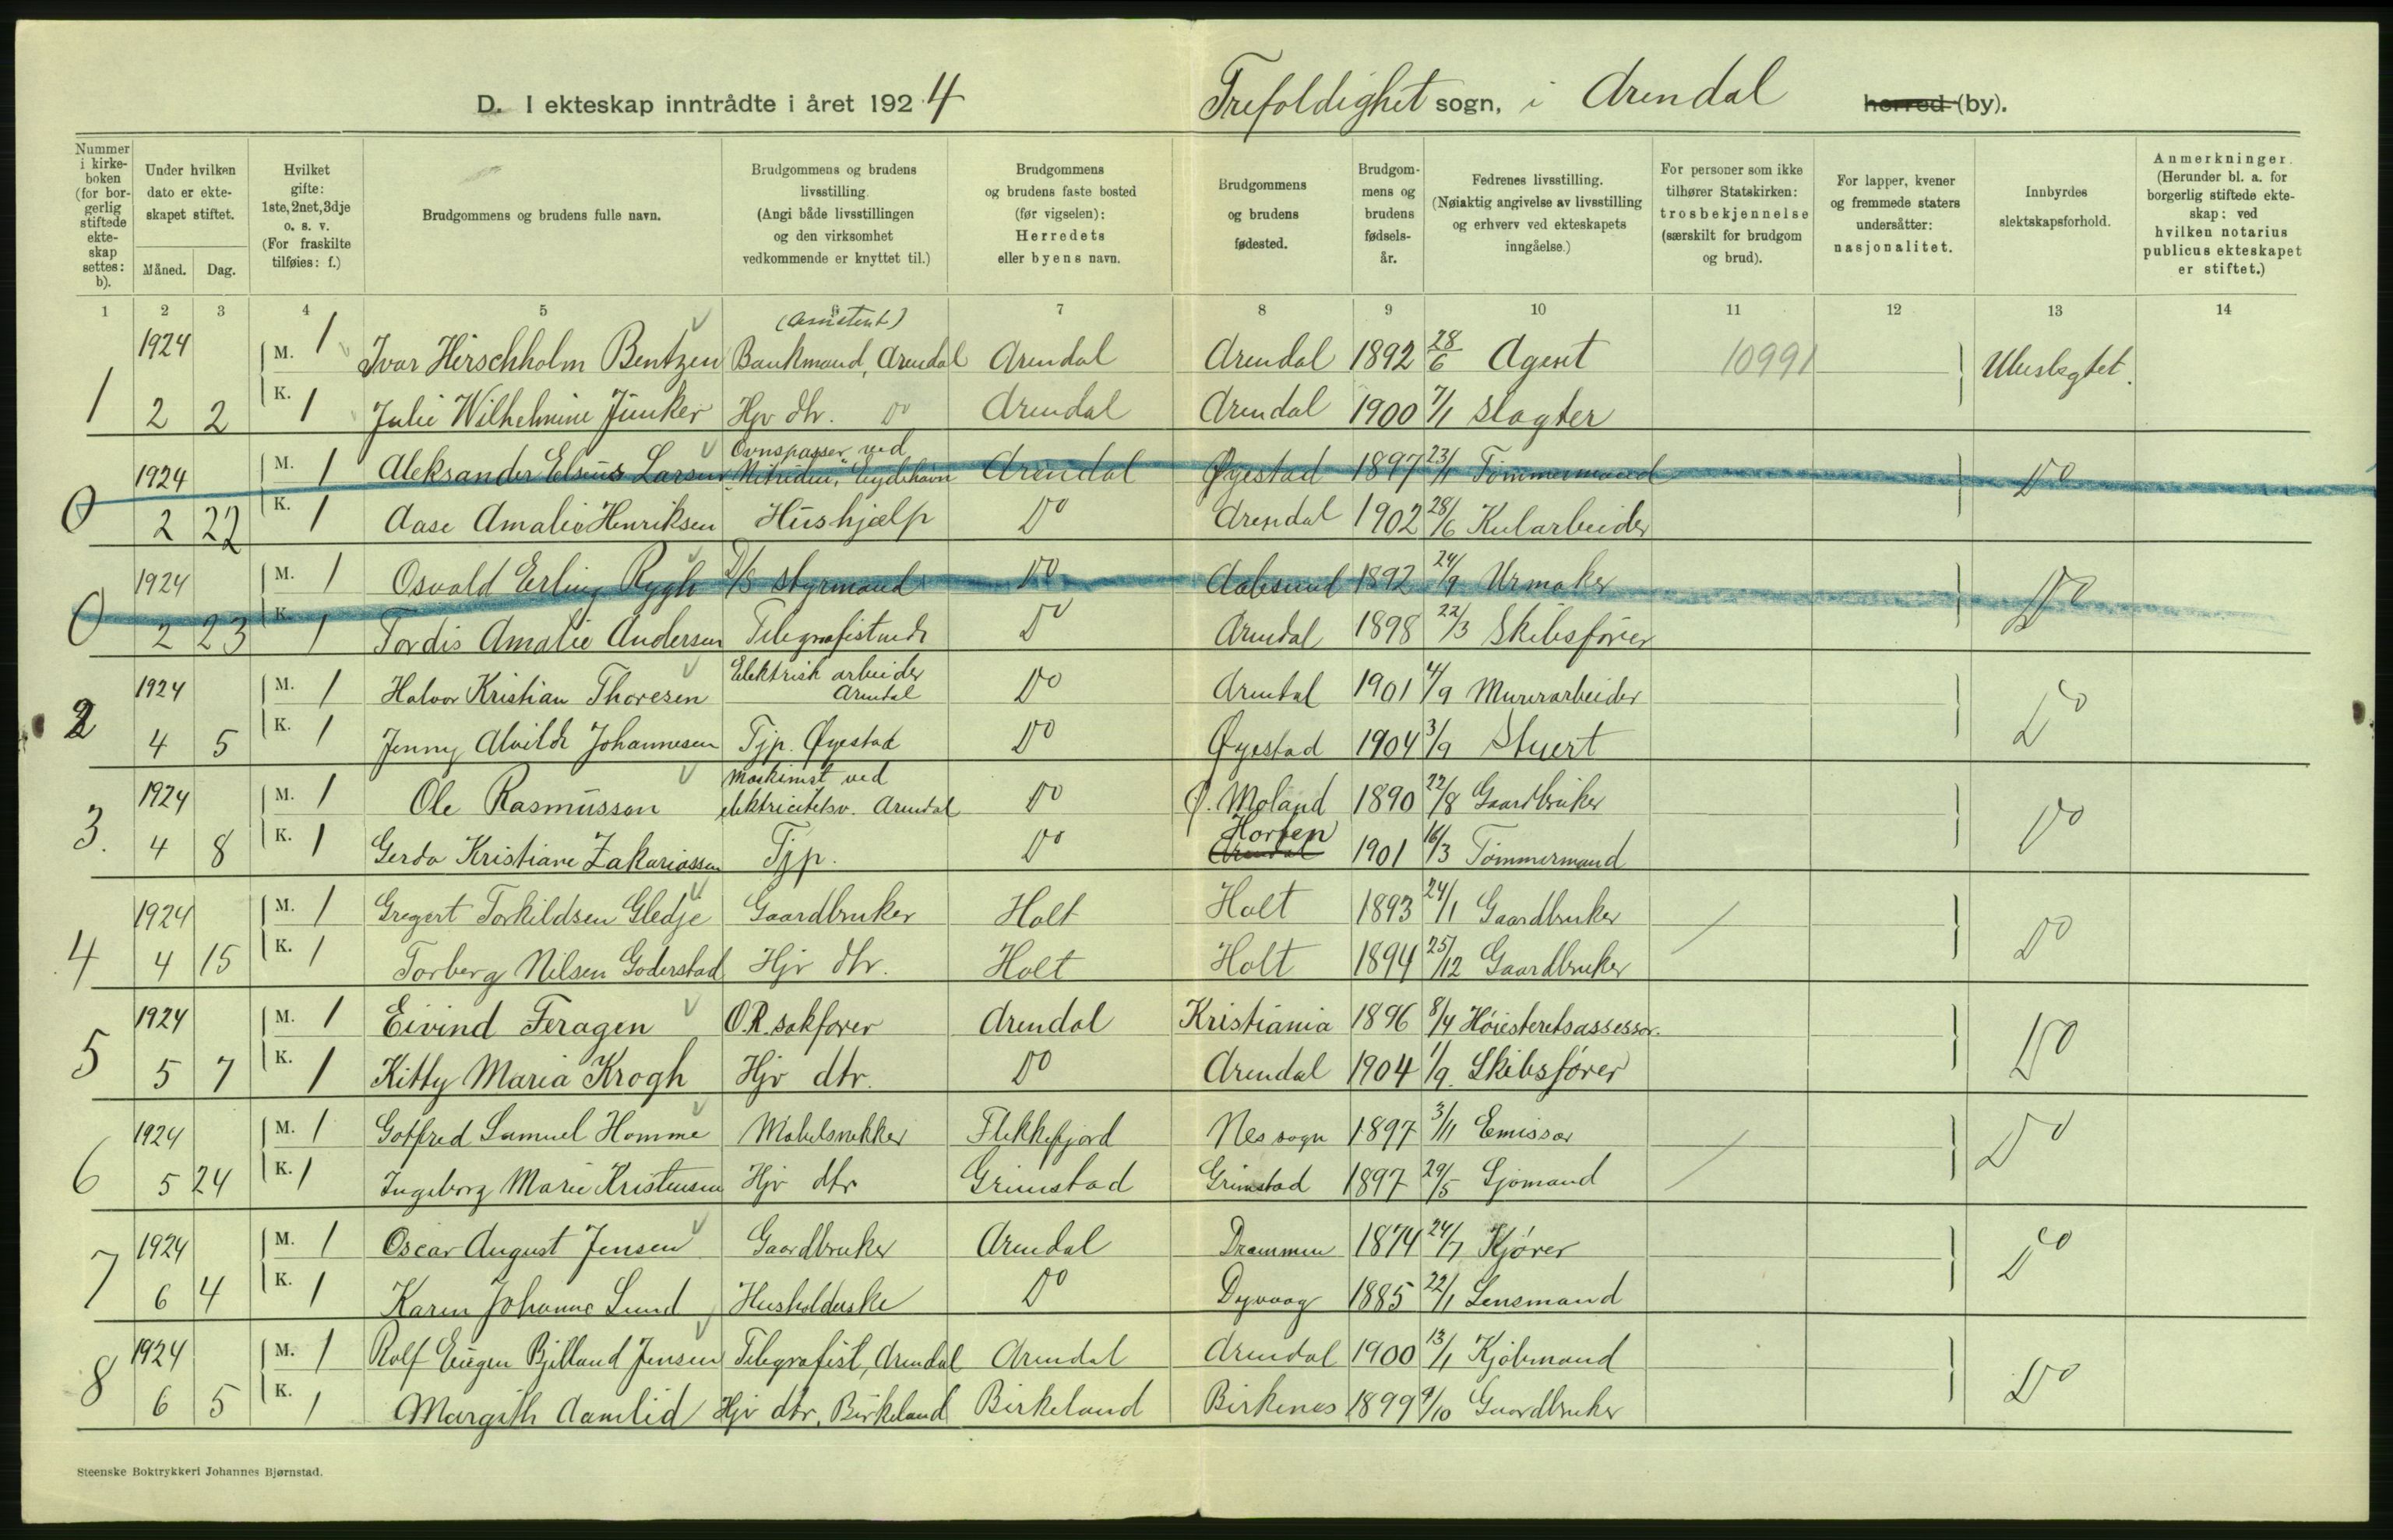 D. I ekteskap inntrådte i året 1924 Trefoldighet sogn, i Arendal herred (by).
Nummer i kirkeboken (for borgerlig stiftede ekteskap settes: b).
Under hvilken dato er ekteskapet stiftet.
Måned. Dag.
Hvilket gifte: 1ste, 2net, 3dje o. s. v. (For fraskilte tilføies: f.)
Brudgommens og brudens fulle navn.
Brudgommens og brudens livsstilling. (Angi både livsstillingen og den virksomhet vedkommende er knyttet til.)
Brudgommens og brudens faste bosted (før vigselen): Herredets eller byens navn.
Brudgommens og brudens fødested.
Brudgommens og brudens fødselsår.
Fedrenes livsstilling. (Nøiaktig angivelse av livsstilling og erhverv ved ekteskapets inngåelse.)
For personer som ikke tilhører Statskirken: trosbekjennelse (særskilt for brudgom og brud).
For lapper, kvener og fremmede staters undersåtter: nasjonalitet.
Innbyrdes slektskapsforhold.
Anmerkninger. (Herunder bl. a. for borgerlig stiftede ekteskap: ved hvilken notarius publicus ekteskapet er stiftet.)
1 2 3 4 5 6 7 8 9 10 11 12 13 14
(Assistent)
1924 M. 1 Ivar Hirschholm Bentzen Bankmand, Arendal Arendal Arendal 1892 28/6 Agent 10991 Ubeslegtet.
1 2 2 K. 1 Julie Wilhelmine Junker Hjv dtr. Do Arendal Arendal 1900 7/1 Slagter
Ovnspasser ved
1924 M. 1 Aleksander Elsius Larsen "Nitriden", Eydehavn Arendal Øyestad 1897 23/1 Tømmermand Do
0 2 22 K. 1 Aase Amalie Henriksen Hushjælp Do Arendal 1902 28/6 Kularbeider
1924 M. 1 Osvald Erling Rygh D/S styrmand Do Aalesund 1892 24/9 Urmaker Do
0 2 23 K. 1 Tordis Amalie Andersen Telegrafistinde Do Arendal 1898 22/3 Skibsfører
Elektrisk arbeider
1924 M. 1 Halvor Kristian Thoresen Arendal Do Arendal 1901 4/9 Murerarbeider Do
2 4 5 K. 1 Jenny Alvilde Johannesen Tjp. Øyestad Do Øyestad 1904 3/9 Stuert
Maskinist ved
1924 M. 1 Ole Rasmussen elektricitetsv. Arendal Do Ø. Moland 1890 22/8 Gaardbruker Do
Horten
3. 4 8 K. 1 Gerda Kristiane Zakariassen Tjp. Do Arendal 1901 16/3 Tømmermand
1924 M. 1 Gregert Torkildsen Gledje Gaardbruker Holt Holt 1893 24/1 Gaardbruker Do
4 4 15 K. 1 Torberg Nilsen Goderstad Hjv dtr. Holt Holt 1894 25/12 Gaardbruker
1924 M. 1 Eivind Feragen O.R. sakfører Arendal Kristiania 1896 8/4 Høiesteretsassessor. Do
5 5 7 K. 1 Kitty Maria Krogh Hjv dtr. Do Arendal 1904 1/9. Skibsfører
1924 M. 1 Gotfred Samuel Homme Møbelsnekker Flekkefjord Nes sogn 1897 3/11 Emissær Do
6 5 24 K. 1 Ingeborg Marie Kristensen Hjv dtr Grimstad Grimstad 1897 29/5 Sjømand
1924 M. 1 Oscar August Jensen Gaardbruker Arendal Drammen 1874 24/7 Kjører Do
7 6 4 K. 1 Karen Johanne Lund Husholderske Do Dyvaag 1885 22/1 Lensmand
1924 M. 1 Rolf Eugen Bjelland Jensen Telegrafist, Arendal Arendal Arendal 1900 13/1 Kjøbmand Do
8 6 5 K. 1 Margith Aamlid Hjv dtr, Birkeland Birkeland Birkenes 1899 9/10 Gaardbruker
Steenske Boktrykkeri Johannes Bjørnstad.